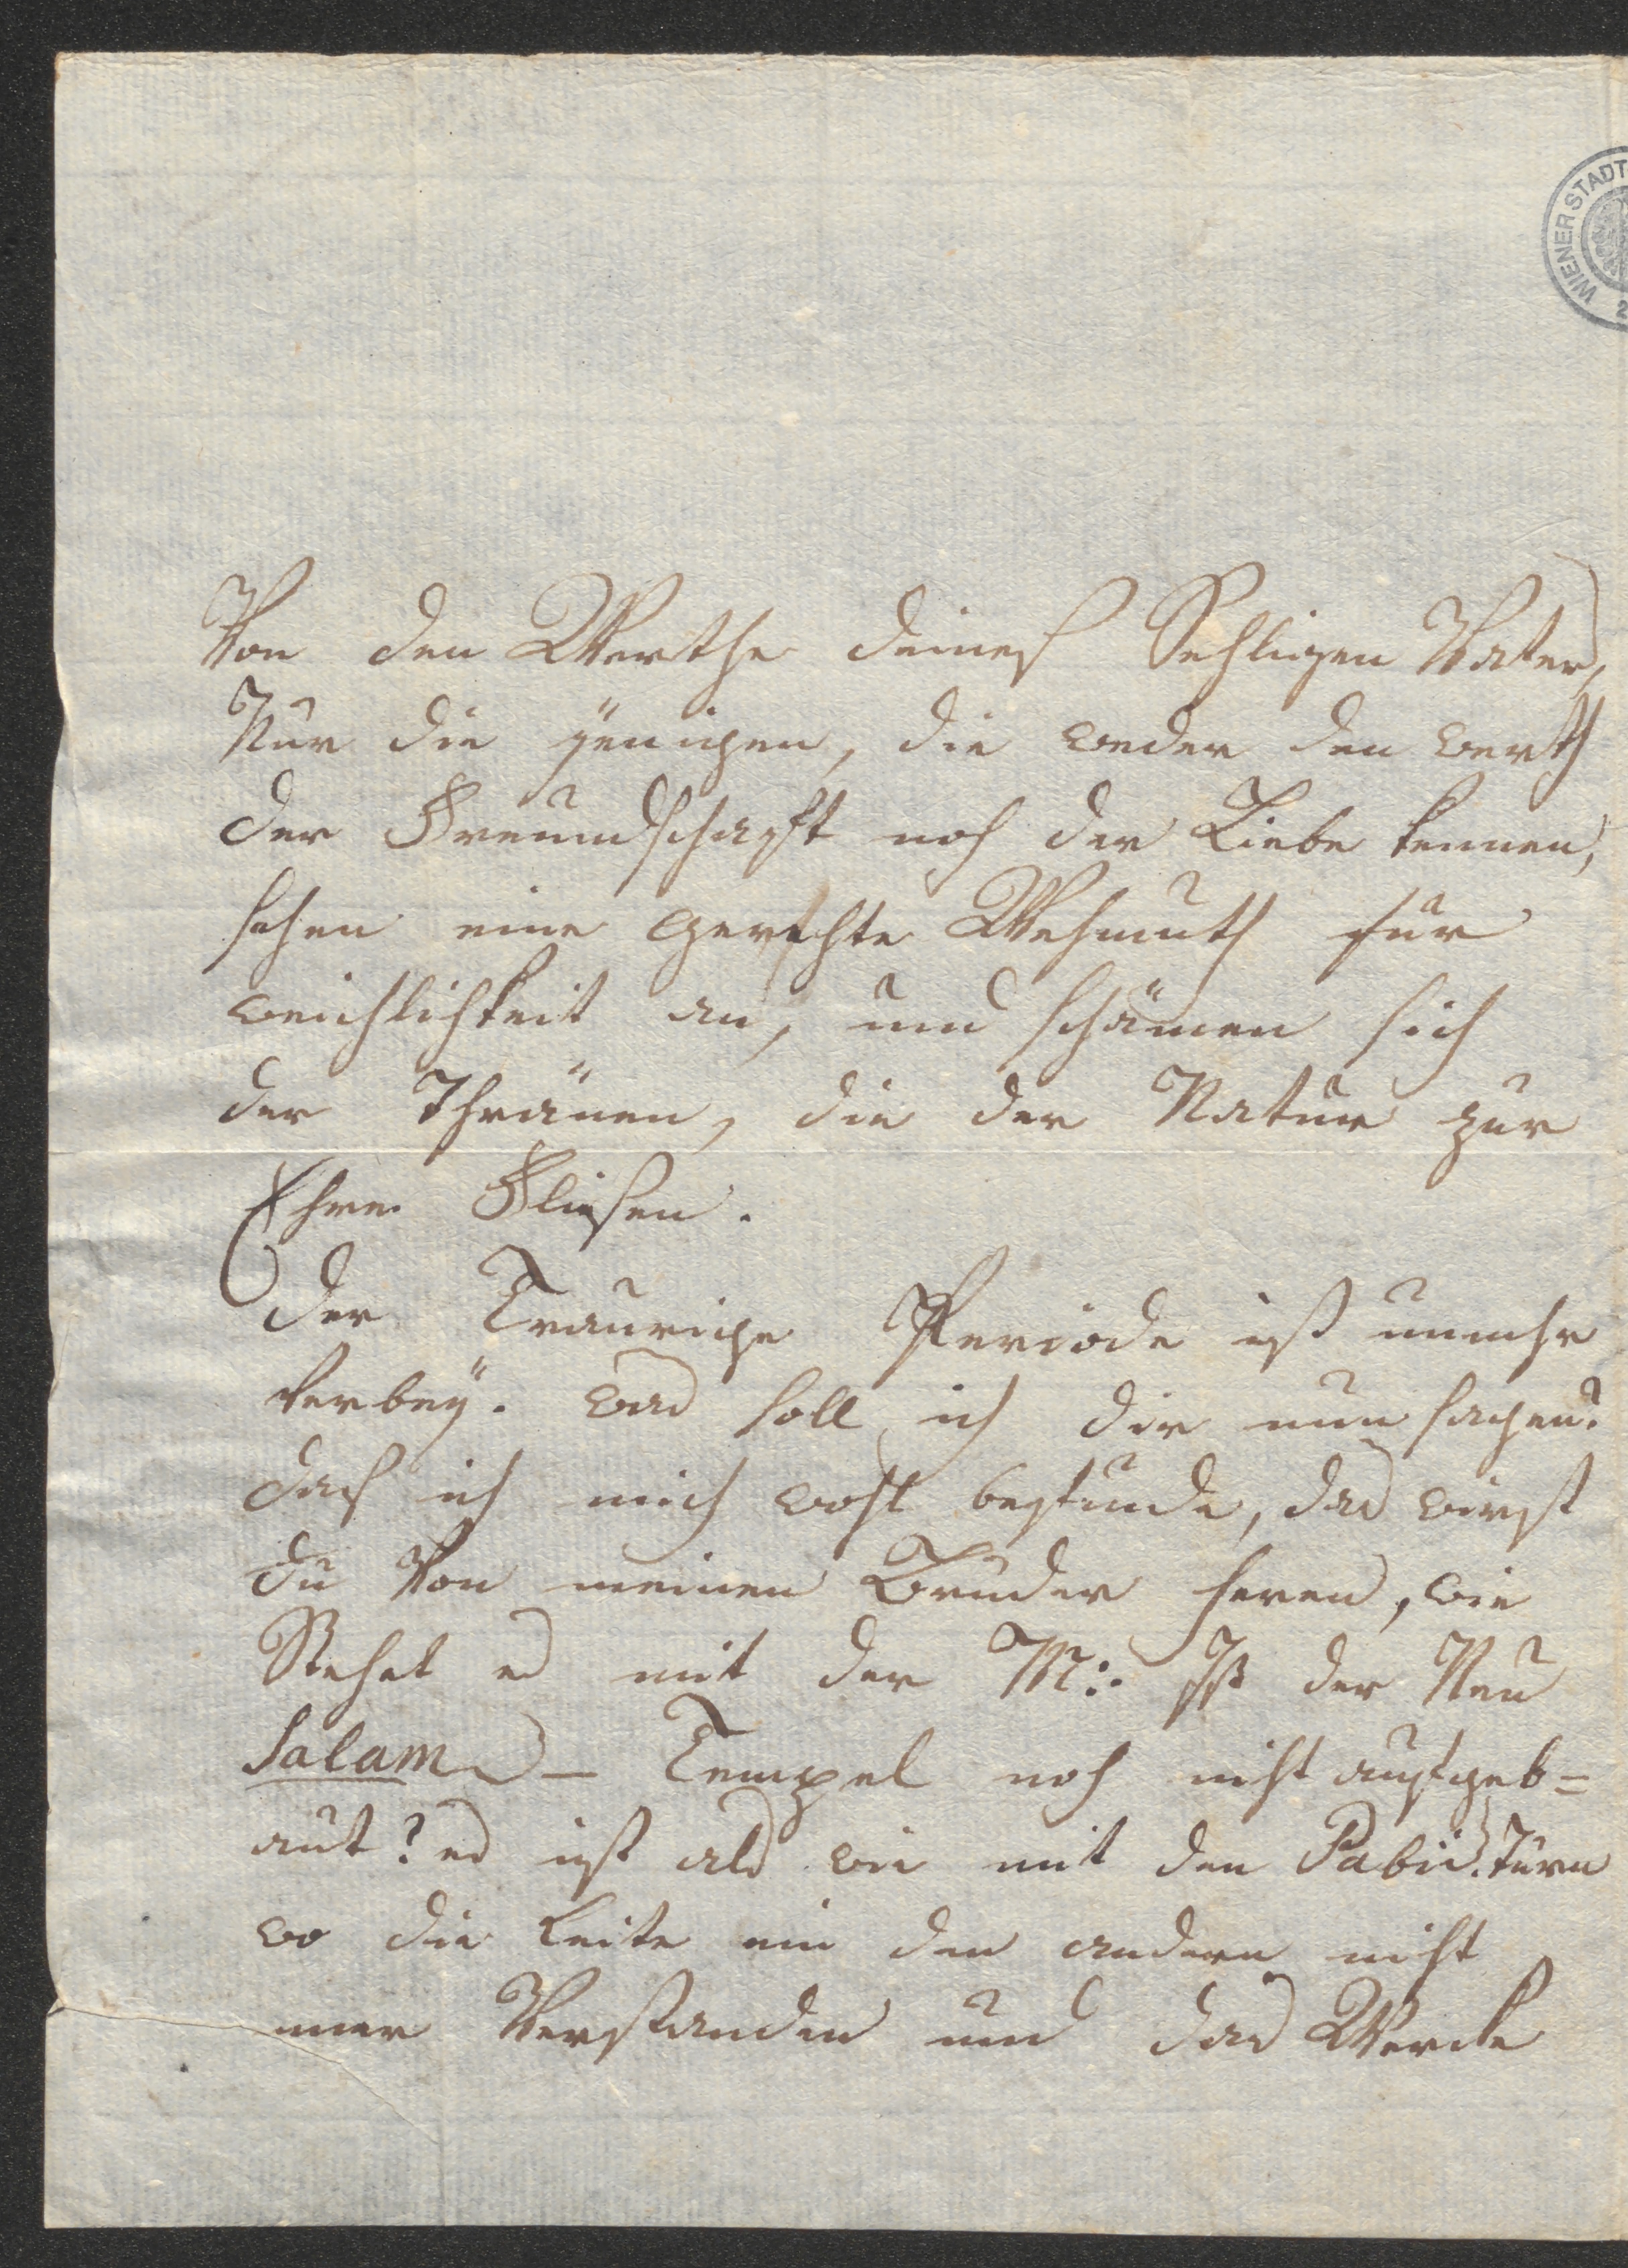 WIENER STADT
2
Von den Werthe deines Sehligen Vaters,
Nur die jenigen, die weder den werth
der Freundschafft noch der Liebe kennen,
sehen eine gerechte Wehmuth für
weichlichkeit an, und schämen sich
der Thränen, die der Natur zur
Ehre Fliesen.
der Traurige Periode ist nunmehr
verbey. was soll ich dir nun sagen?
das ich mich wohl befünde, das wirst
du Von meinen Bruder heren, wie
Stehet es mit der M: Ist der Neu
Salams – Tempel noch nicht aufgeb=
aut? es ist als wie mit den Turn
wo die Leite ein den andern nicht
mer Verstanden und das Wercke